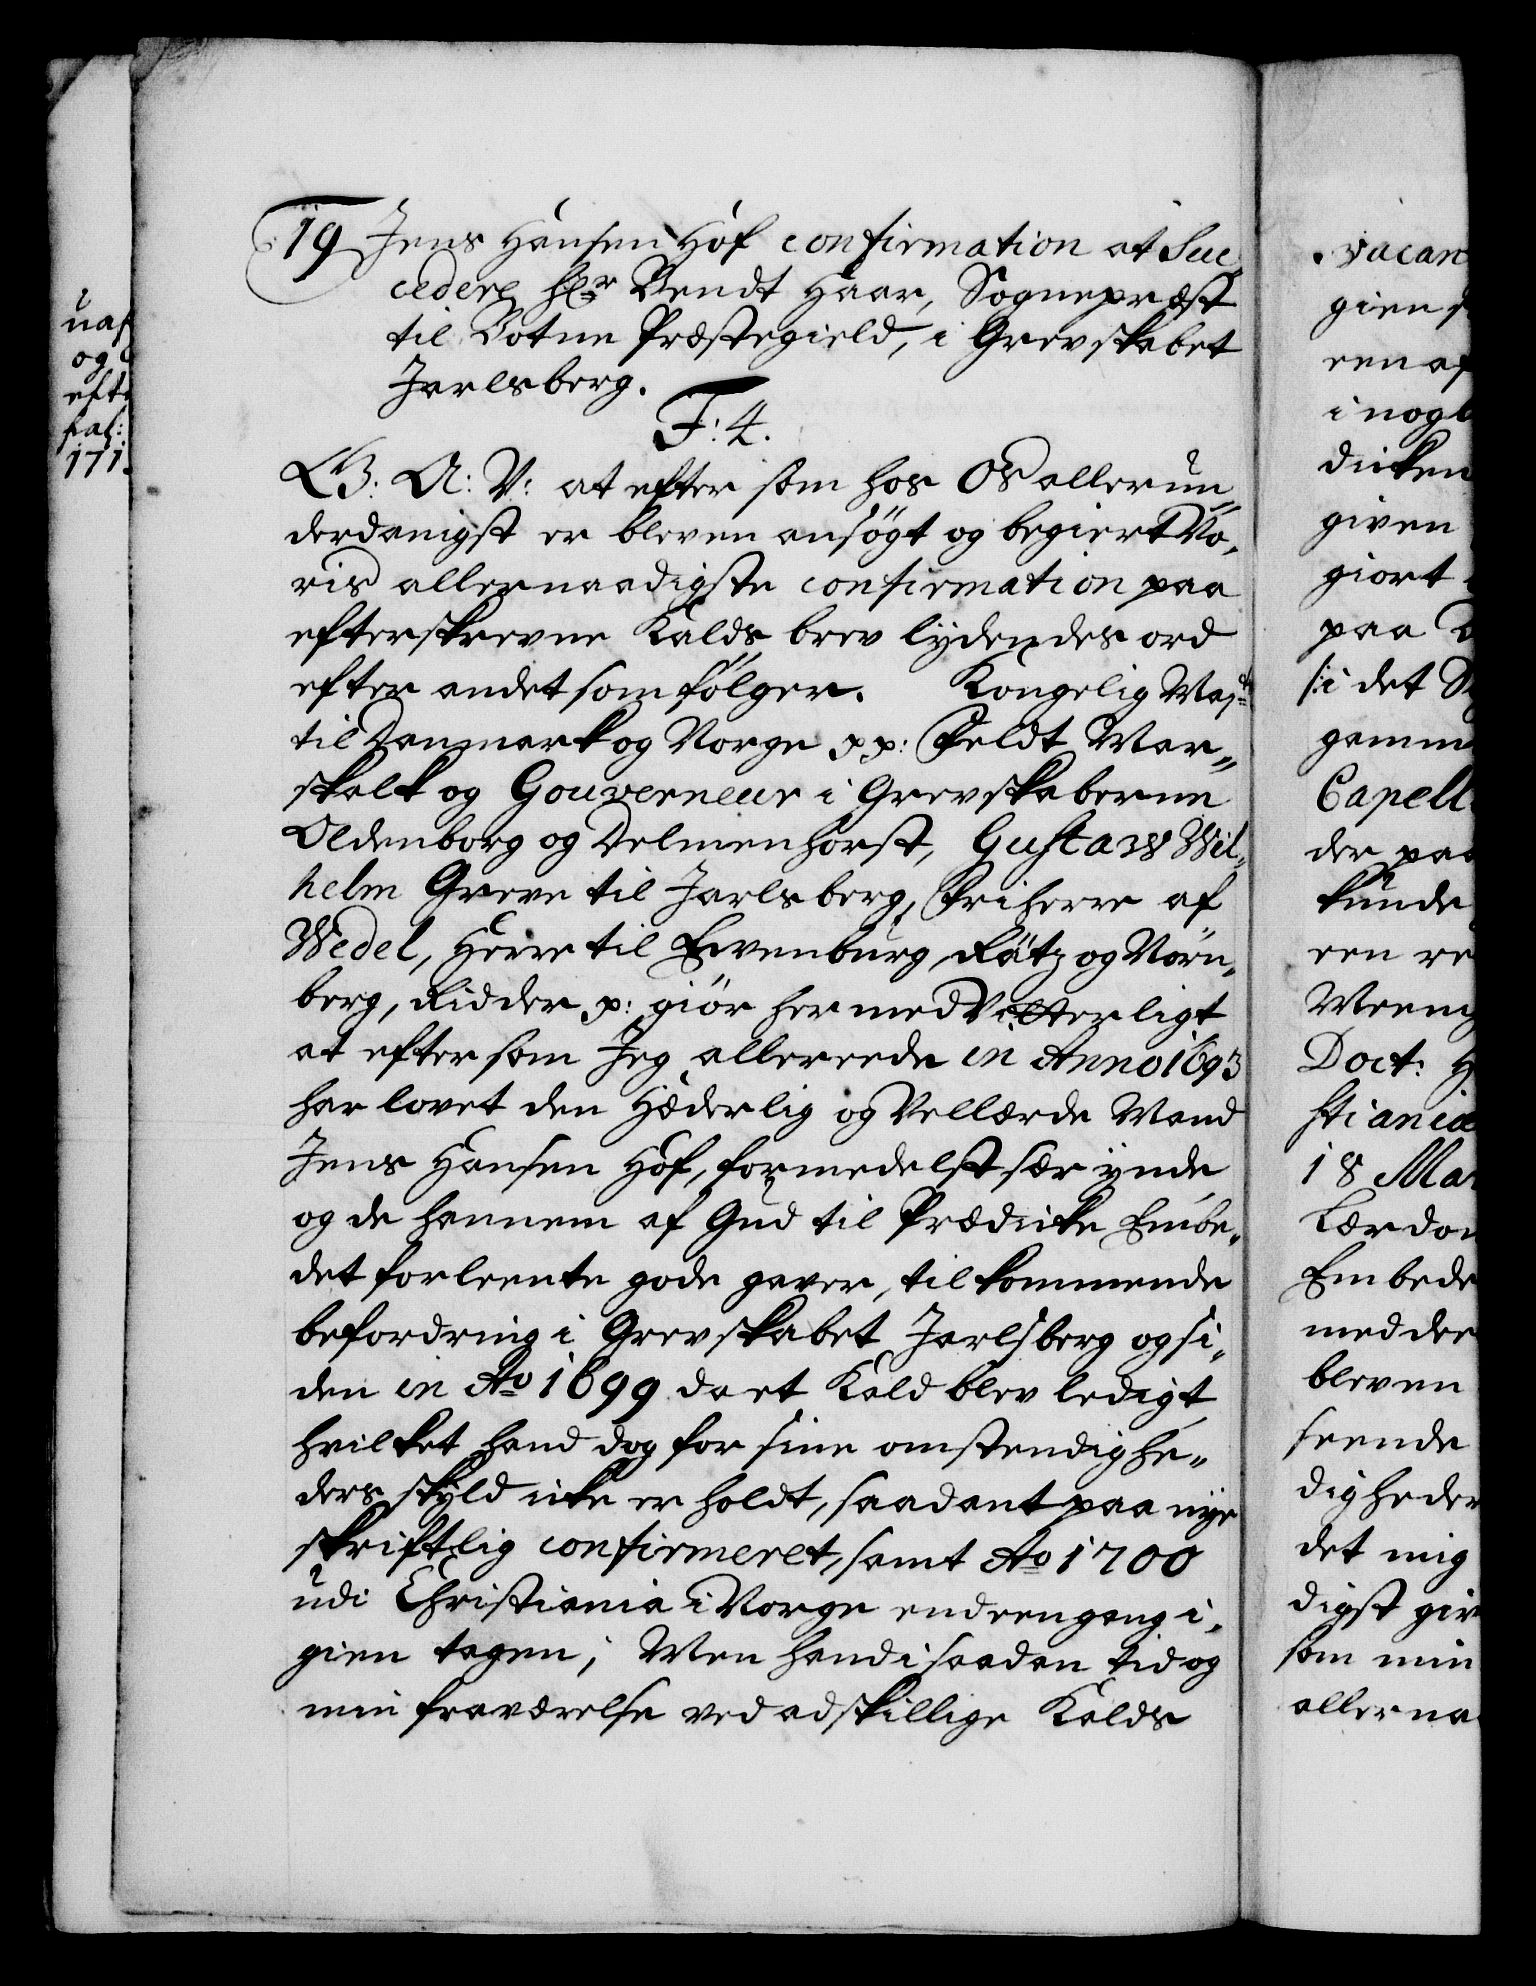 19 Jens Hansen Hof confirmation at Suc,
cedere hr Bendt Haar, Sognepræst
til Botne Præstegield, i Grevskabet
Jarlsberg.
F: 4.
G: A: V: at efter som hos Os allerun„
derdanigst er bleven ansøgt og begiert Vo,
ris allernaadigste confirmation paa
efterskrevne Kalds brev lydendes ord
efter andet som følger. Kongelig Maj:ts
til Danmark og Norge pp: Feldt Mar„
skalk og Gouverneur i Grevskaberne
Oldenborg og Delmenhorst, Gustaw Wil„
helm Greve til Jarlsberg, Friherre af
Wedel, Herre til Evenburg, Rätz og Nørn„
berg, Ridder p: giør hermed Vitterligt
at eftersom Jeg allereede in Anno 1693
har lovet den Hæderlig og Vellærde Mand
Jens Hansen Hof, formedelst sær ynde
og de hannem af Gud til Prædicke Embe„
det forleente gode gaver, tilkommende
befordring i Grevskabet Jarlsberg og si„
den in Ao 1699 da et Kald blev ledigt
hvilket hand dog for sine omstendighe„
ders skyld icke er holdt, saadant paa nye
skriftlig confirmeret, samt Ao 1700
udi Christiania i Norge end eengang i„
gien tagen; Men hand i saadan tid og
min fraværelse ved adskillige Kalds
uaf
og
efte
fal:
171
vacan
gien
een af
i nogl
dicken
given
giort
paa
/:i det
gamm
Capell
der paa
kunde
een re
Meeni
Doct: H
stiania
18 Mar
Lærdom
Embede
med dee
bleven
seende
digheder
det mig
digst giv
som min
allerna